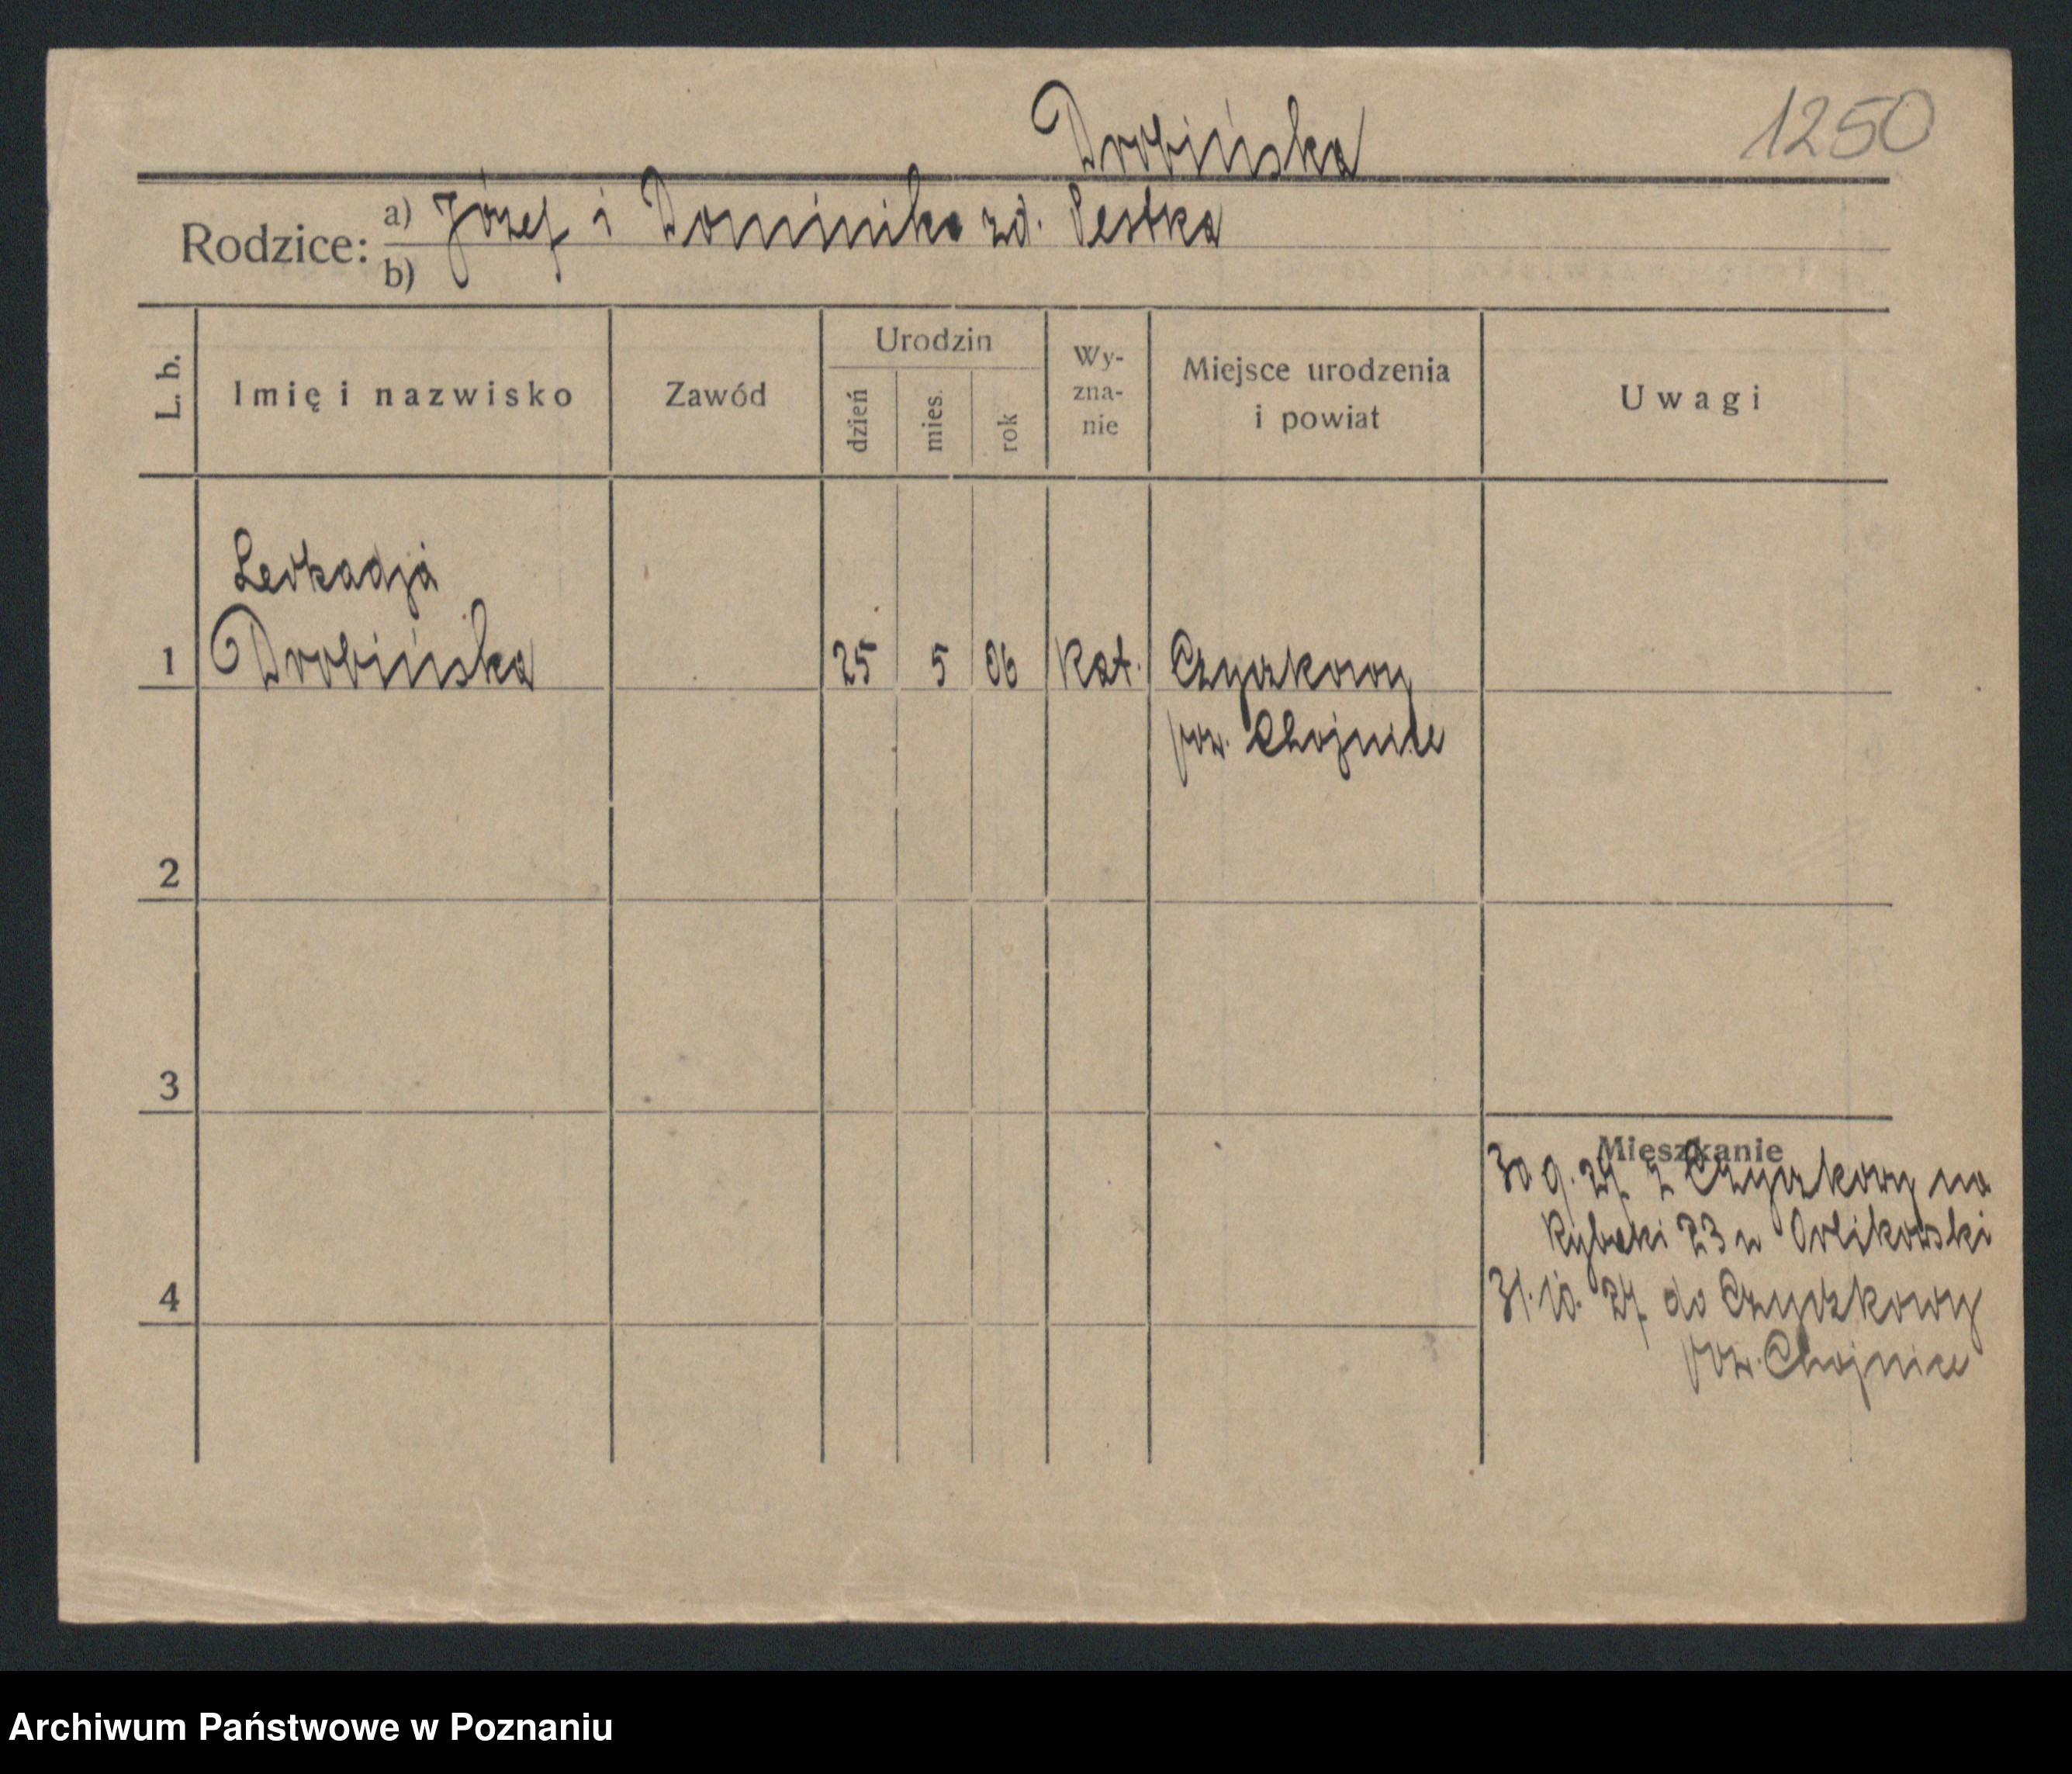 1250
Drobińska
Rodzice: a) Józef i Dominika zd. Pestka
b)
L. b.
Imię i nazwisko
Zawód
Urodzin
dzień
mies.
rok
Wy-
zna-
nie
Miejsce urodzenia
i powiat
Uwagi
Leokadja
1 Drobińska 25 5 06 Kat. Czyczkowy
pow. Chojnice
2
3
Mieszkanie
30 9. 27. z Czyczkowy na
Rybaki 23 u Orlikowski
4
31. 10. 27. do Czyczkowy
pow. Chojnice
Archiwum Państwowe w Poznaniu